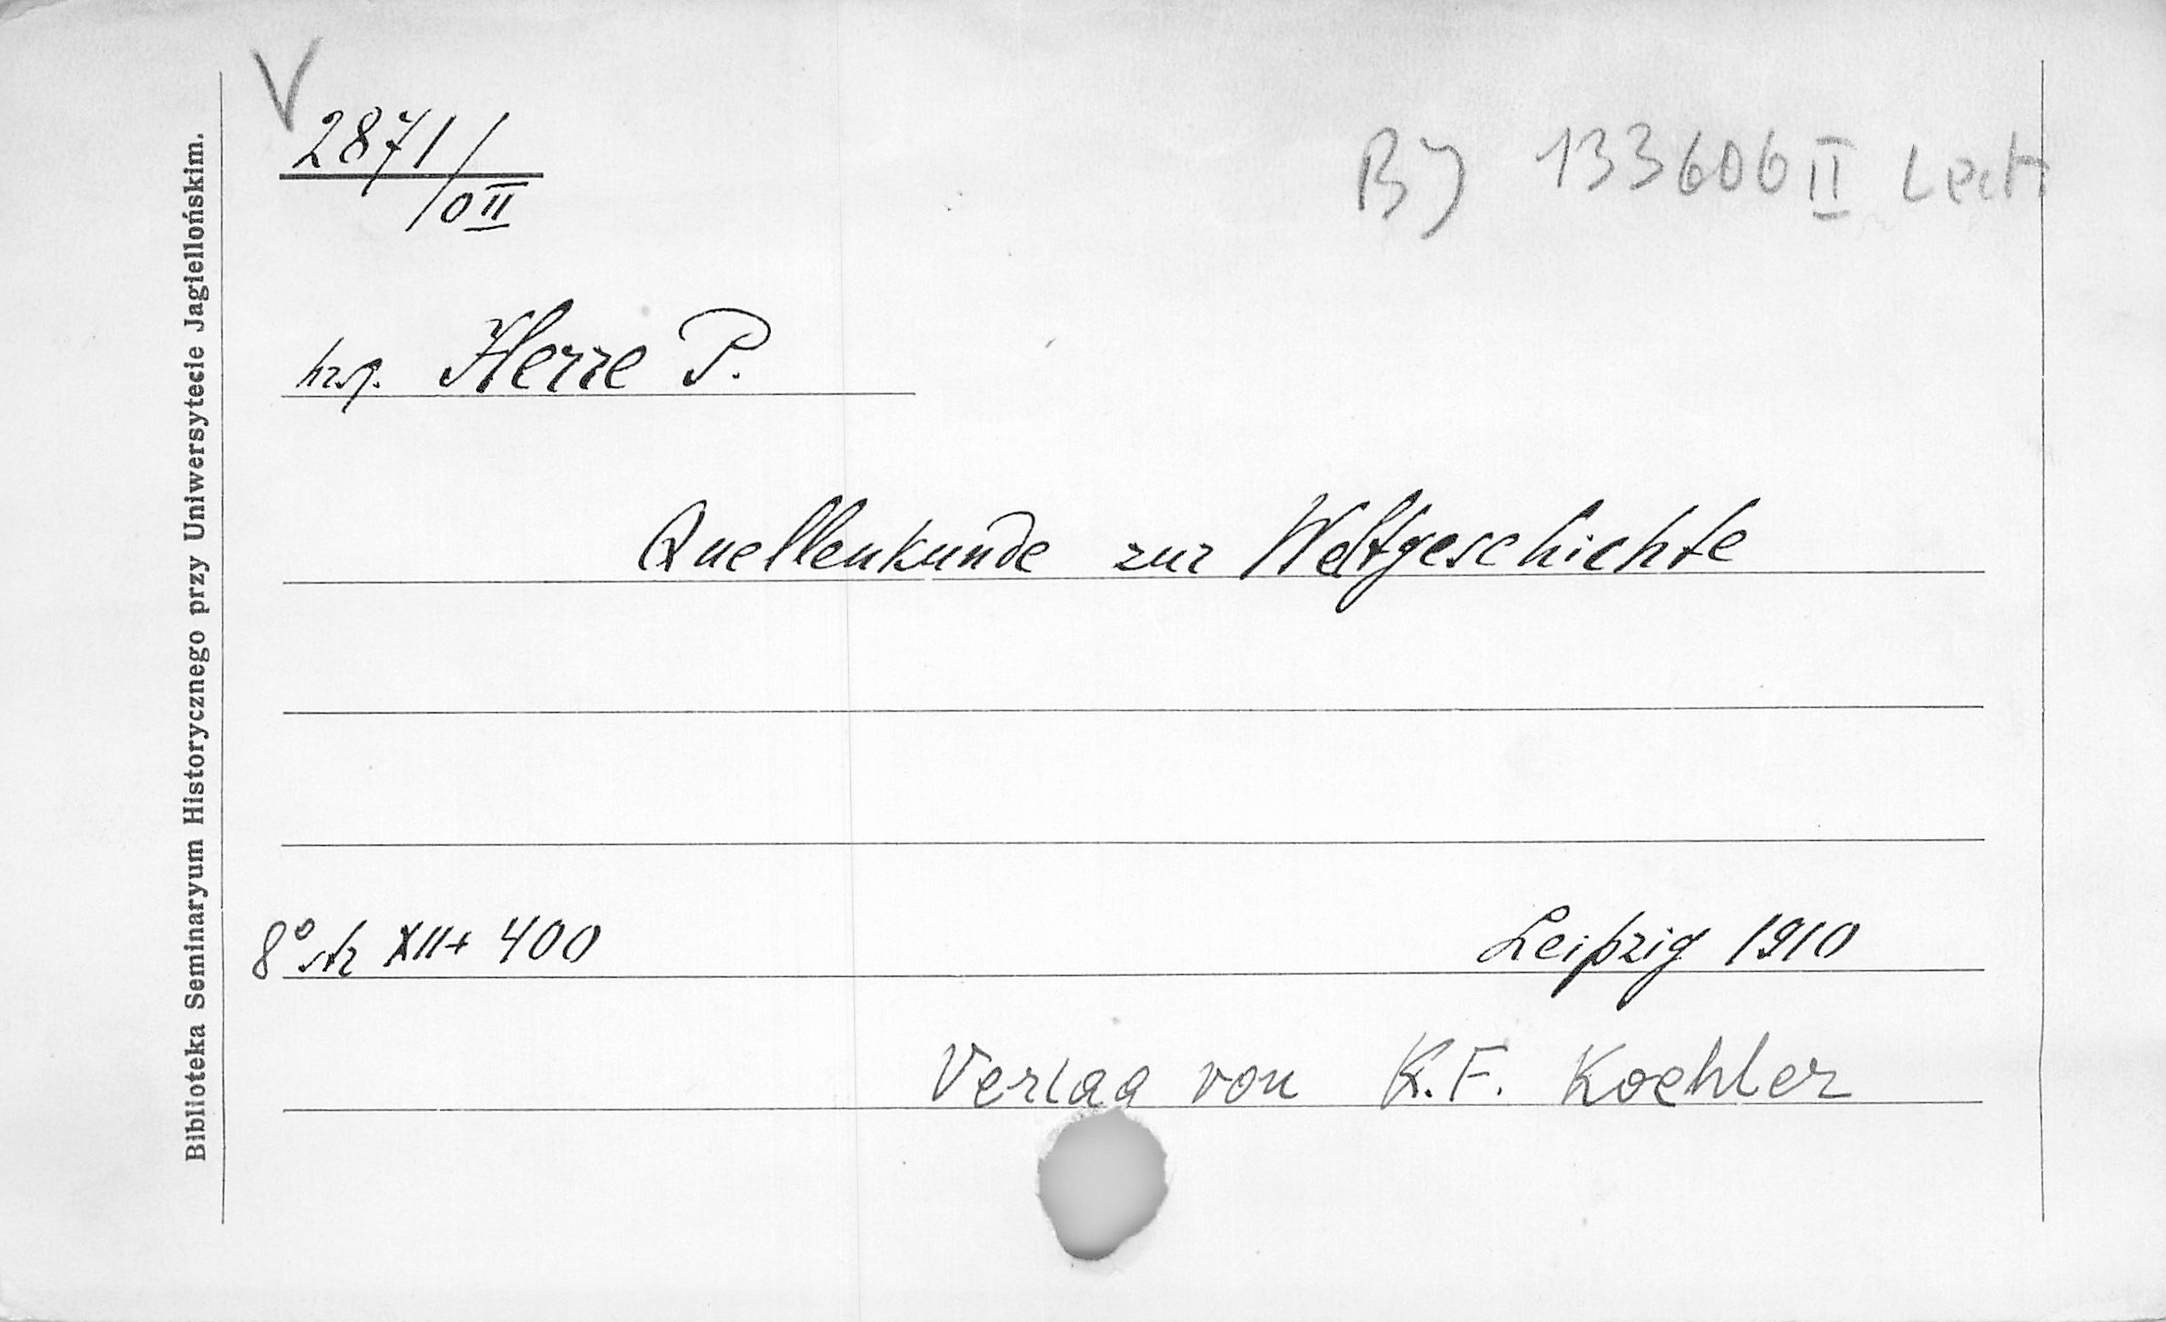 V
2871/
0 II
BJ 133606 II Lect
hrsg. Herre P.
Quellenkunde zur Weltgeschichte
8° str XII+ 400
Leipzig 1910
Verlag von K.F. Koehler
Biblioteka Seminaryum Historycznego przy Uniwersytecie Jagiellońskim.